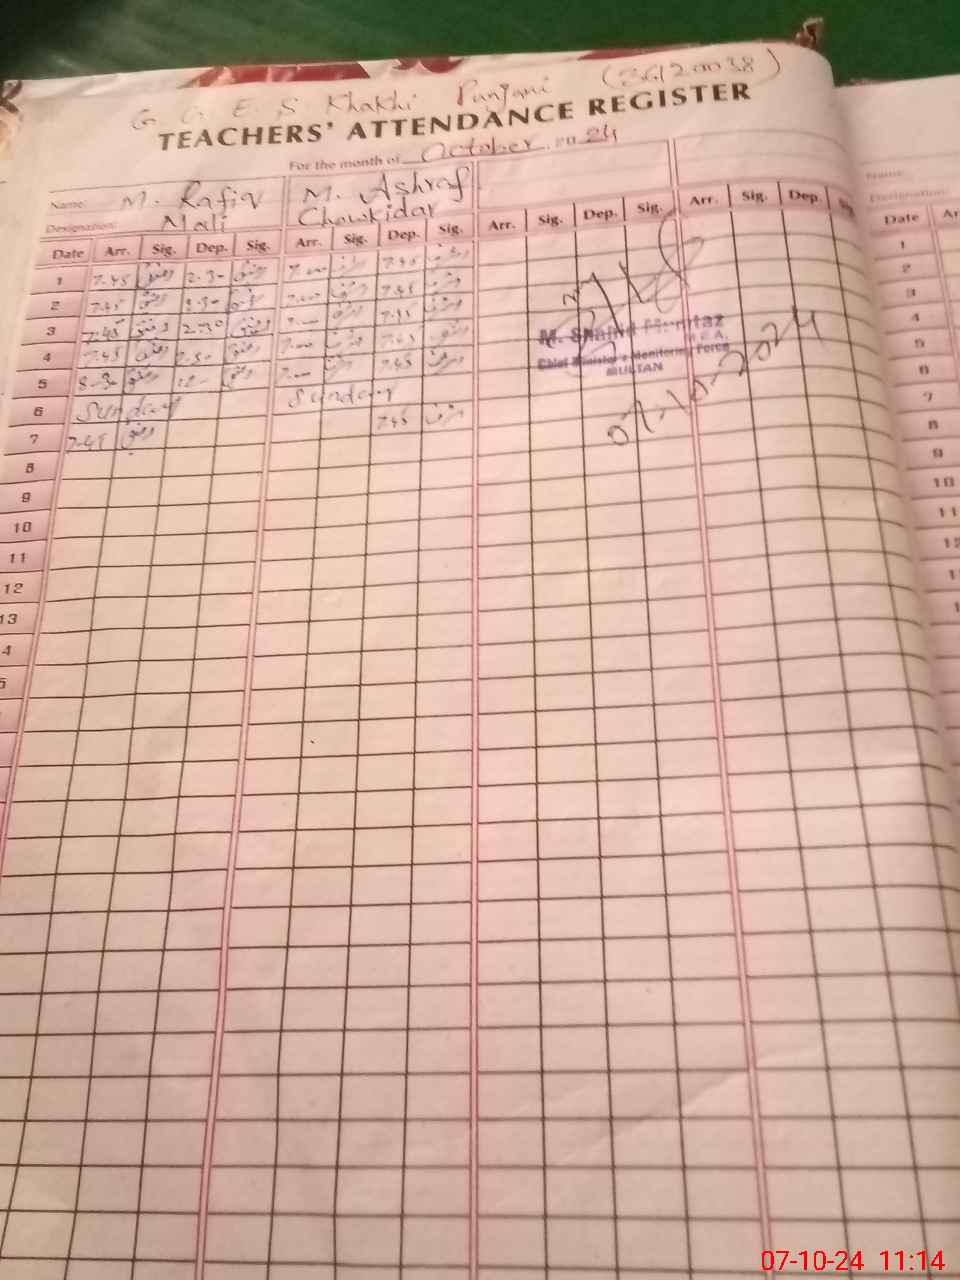 G. G. E. S Khakhi Punjani (36120038)
TEACHERS' ATTENDANCE REGISTER
For the month of October. 20 24
Name: M. Rafiq M. Ashraf
Designation: Mali Chowkidar
Date Arr. Sig. Dep. Sig. Arr. Sig. Dep. Sig. Arr. Sig. Dep. Sig. Arr. Sig. Dep. Sig.
1 7-45 رفیق 2-30 رفیق 7-00 7-45
2 7-45 رفیق 2-30 رفیق 7-00 7-45
3 7-45 رفیق 2-30 رفیق 7-00 7-45
4 7-45 رفیق 7-00 7-45
5 8-30 رفیق 12- رفیق 7-00 7-45
6 Sunday Sunday
7 7-45 رفیق 7-45
8
9
10
11
12
13
4
5
M. Shahid Mumtaz
M.E.A.
Chief Minister's Monitoring Force
MULTAN
07-10-2024
Name:
Designation:
Date Ar
1
2
3
4
5
6
7
8
9
10
11
12
07-10-24 11:14